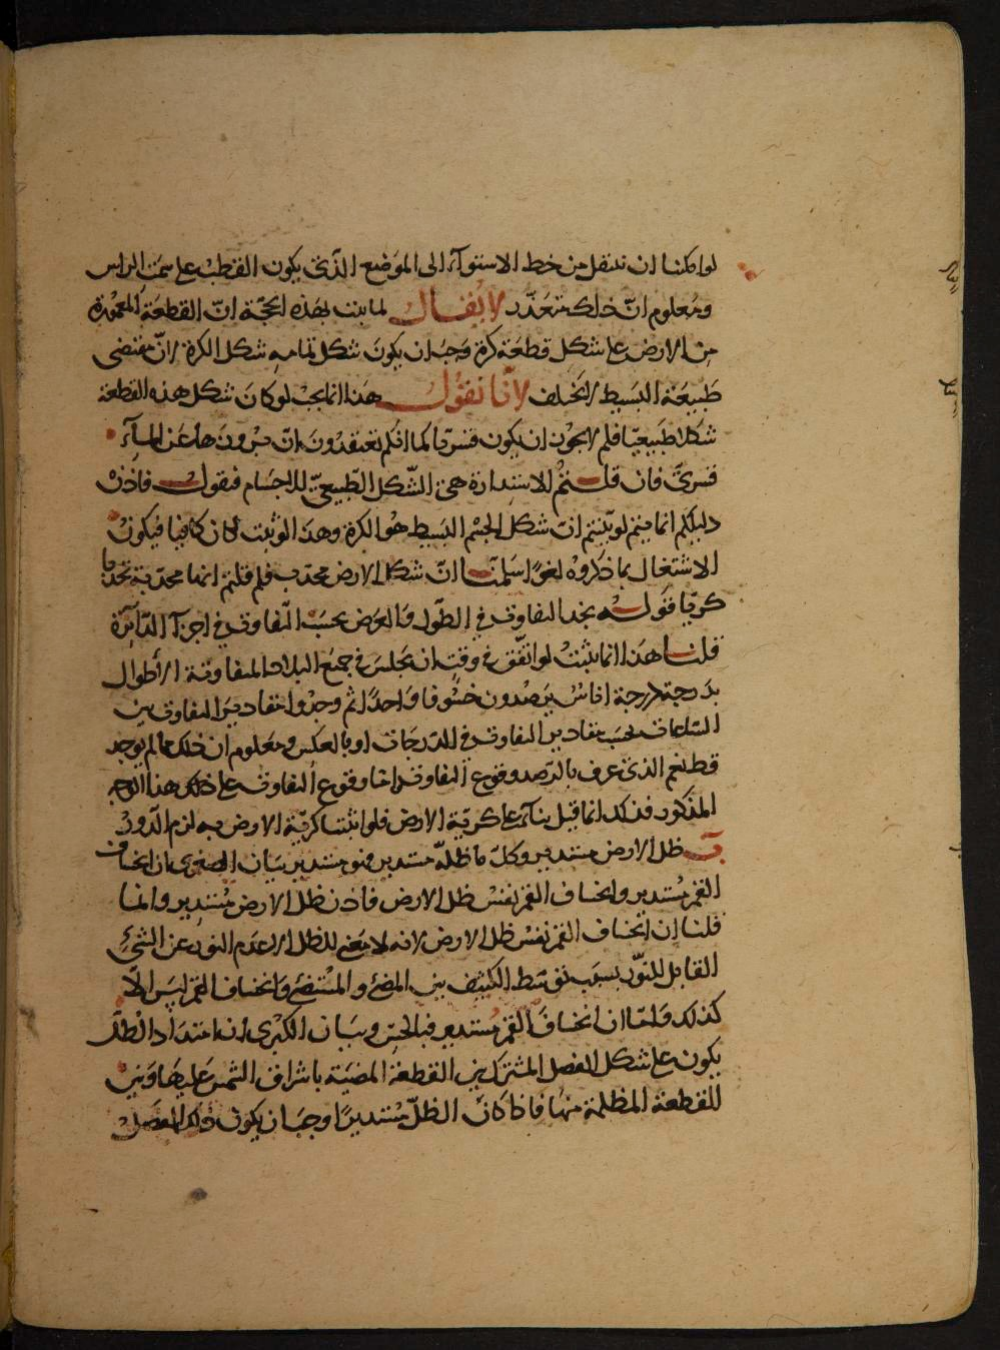 لو امكننا ان ننتقل من خط الاستوآء الى الموَضع الذى يكون القطب على سمت الراس
ومَعلوم انّ ذلك متعذّر لا يُقال لما ثبت بهذه الحجّة انّ القطعَة المعمورة
من الارض على شكل قطعَة كرة وَجبَ ان يكونَ شكل تمامه شكل الكرة لانّ مقتضى
طَبيعَة البَسيط لا يختلف لانّا نقول هذا انما يجبُ لو كانَ شكل هذه القطعة
شكلا طَبيعيّا فلم لا يجوز ان يكون قسريّا كما انكم تعتقدونَ انّ بروزَها عَن المآء
قسرىّ فان قلتم الاستدارة هى الشكل الطّبيعىّ للاجسَام فنقول فاذنْ
دليلكم انما يتم لو بيّنتم انّ شكل الجسْم البسيط هوُ الكرة وهذا لو ثبت لكان كافيا فيكونُ
الاشتغال بما ذكروه لغوًا سَلّمنا انّ شكل الارض محدّب فلم قلتم انها محدّبة تحدّبا
كريّا قوله نجد التفاوت فى الطّول وَالعرض بحسَب التّفاوت فى اجزآء الدّآئرة
قلنا هذا انما يثبتُ لو اتّفق فى وقتٍ ان يجلسَ فى جميع البلاد المتفاوتة الاطوال
بدَرجة درجة اناسٌ يرَصدون خسُوفا وَاحدًا ثم وجَدُوا مقاديرَ التفاوت بين
السّاعات بحَسب مقادير التفاوت فى الدّرجات او بالعكس ومعلوم ان ذلك مما لم يوجد
قط نعم الذى عرف بالرّصد وقوع التفاوت امّا وقوع التفاوت على ذلك هذا الوجه
المذكور فذلك انما قيل بنآء على كريّة الارض فلو اثبتنا كريّة الارض به لزم الدّورُ
ب ظل الارض مستدير وكلّ ما ظلّه مستدير فهو مستدير بيَان الصغرى ان انخساف
القمر مُستدير وانخساف القمر نفسْ ظل الارض فاذن ظل الارض مُستدير وانما
قلنا ان انخساف القمر نفسْ ظل الارض لانه لا مَعنى للظل الا عدَم النور عن الشئِ
القابل للنّور بسَبب توسّط الكثيف بين المضئ والمسْتضئ وَانخساف القمر ليَس الّا
كذلك وَامّا ان انخسافَ القمر مُستدير فبالحسّ وبيَان الكبرى ان امتدَاد الظلّ
يكون على شكل الفصل المشترك بين القطعة المضيئة باشراق الشمس عَليهَا وَبين
القطعة المظلمة منها فاذا كانَ الظلّ مُستديرًا وجَبَ ان يكون ذلك الفصَل